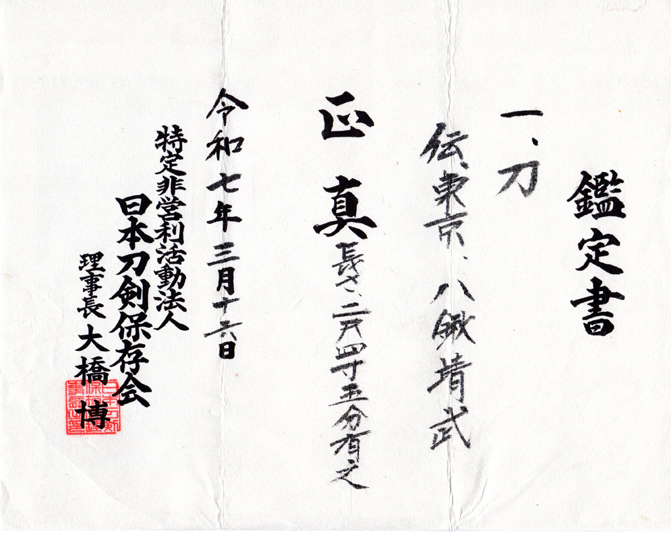 鑑定書
一、刀
伝、東京、八鍬靖武
正真 長さ、二尺四寸五分有之
令和七年三月十六日
特定非営利活動法人
日本刀剣保存会
理事長 大橋 博